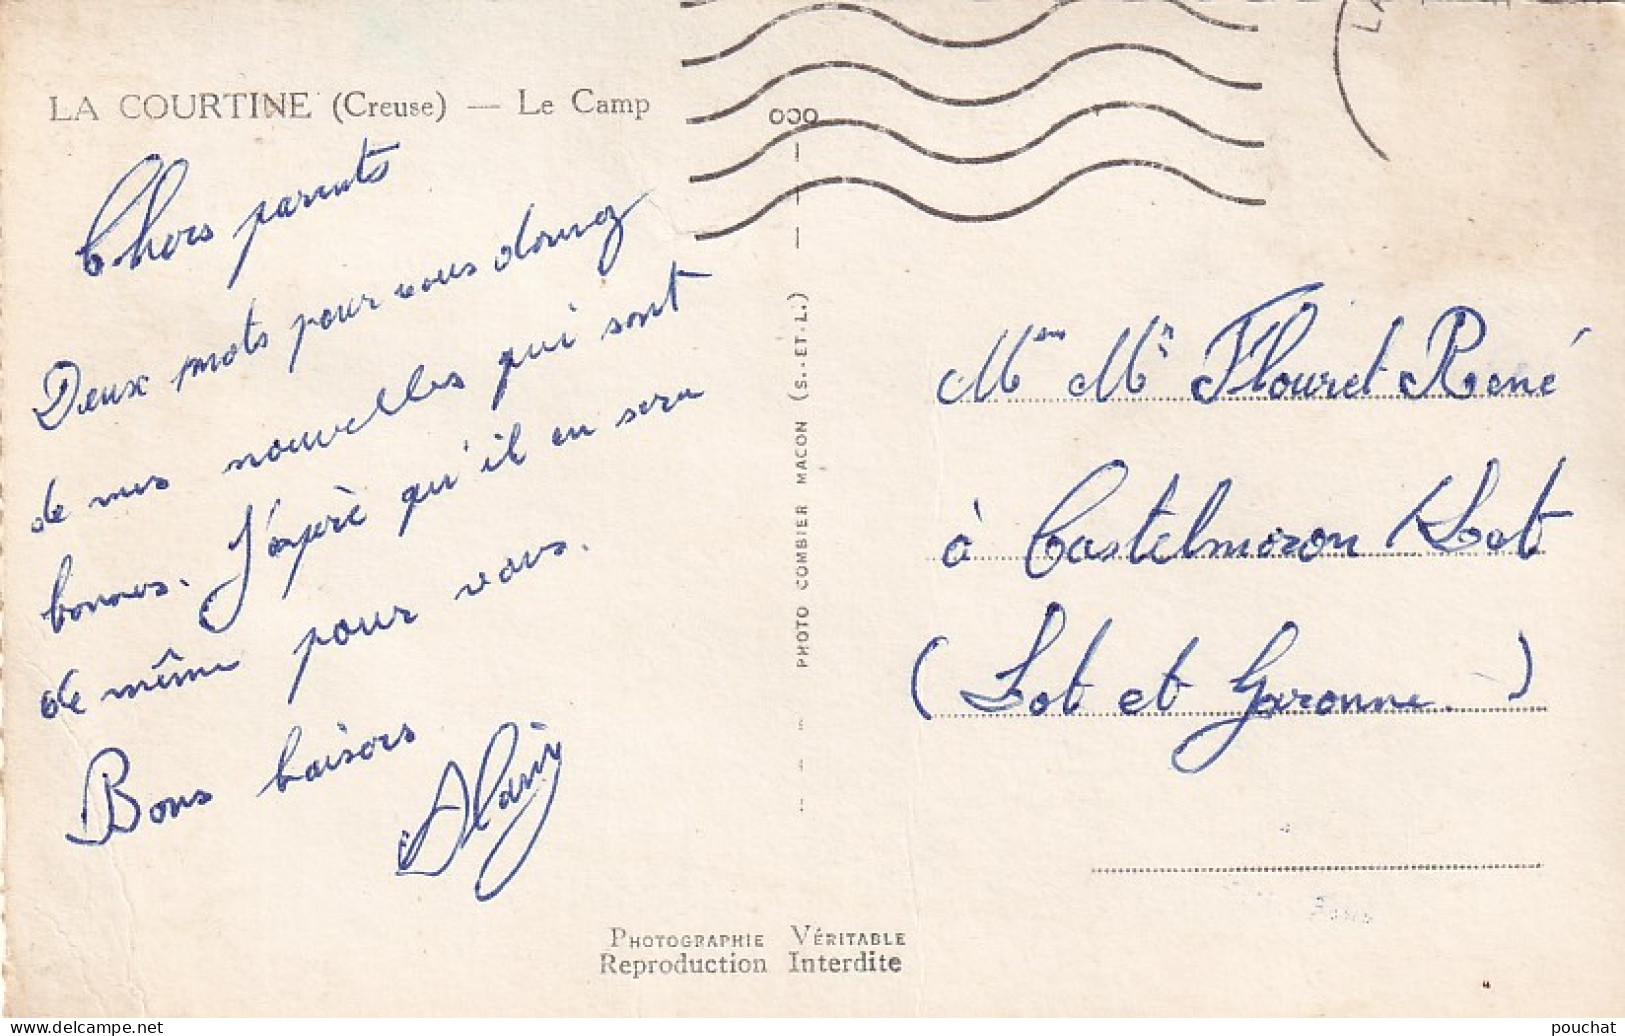 LA COURTINE (Creuse) — Le Camp
Chers parents
Deux mots pour vous donnez
de mes nouvelles qui sont
bonnes. J'espère qu'il en sera
de même pour vous.
Bons baisers
Alain
PHOTO COMBIER MACON (S.-ET-L.)
PHOTOGRAPHIE VÉRITABLE
Reproduction Interdite
LA
Mr Flouret René
à Castelmoron / Lot
(Lot et Garonne.)
pouchat